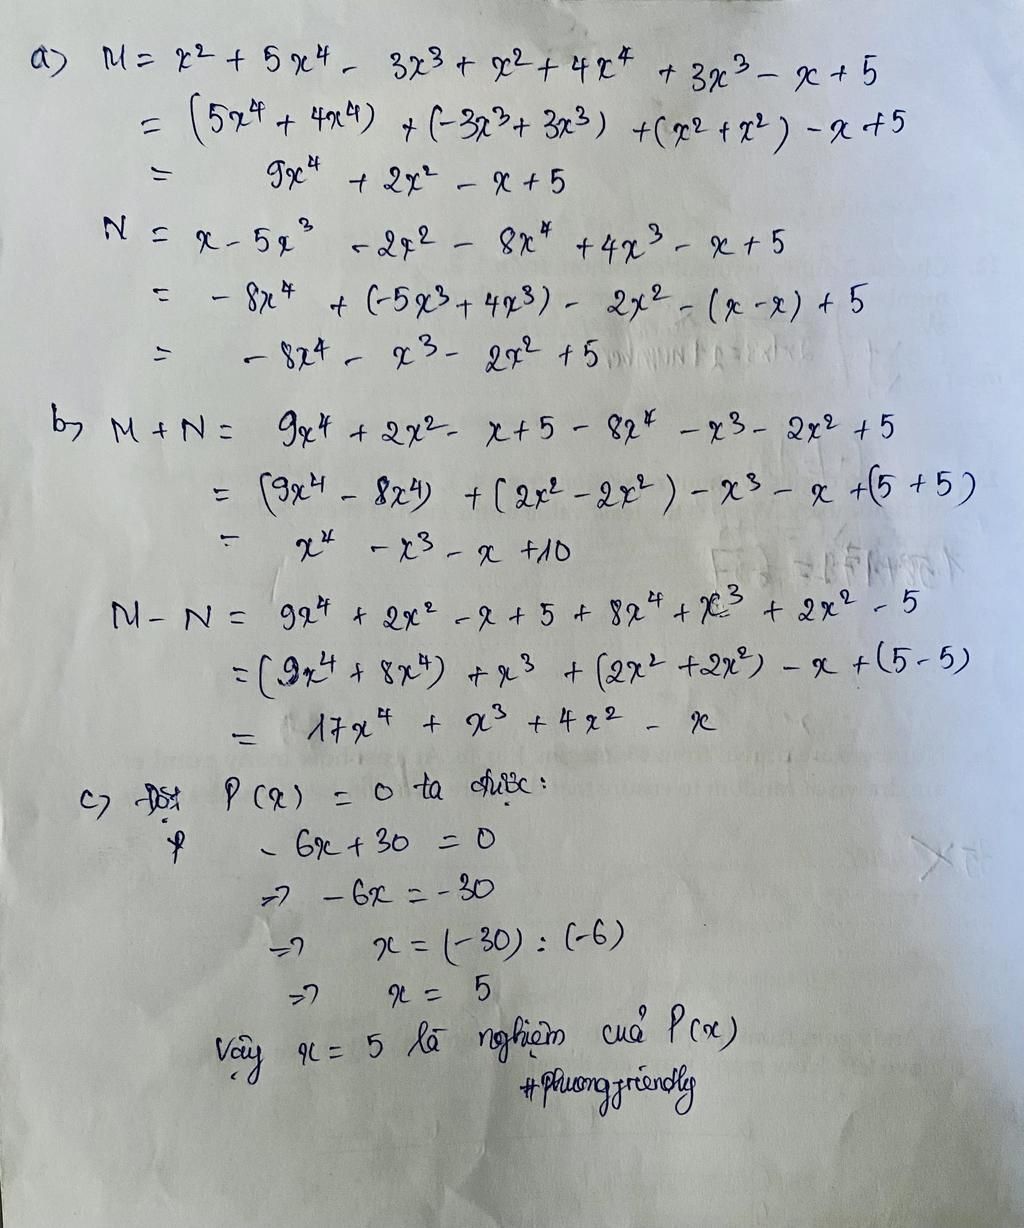 a) M = x² + 5x⁴ - 3x³ + x² + 4x⁴ + 3x³ - x + 5
= (5x⁴ + 4x⁴) + (-3x³ + 3x³) + (x² + x²) - x + 5
= 9x⁴ + 2x² - x + 5
N = x - 5x³ - 2x² - 8x⁴ + 4x³ - x + 5
= - 8x⁴ + (-5x³ + 4x³) - 2x² - (x - x) + 5
= - 8x⁴ - x³ - 2x² + 5
b) M + N = 9x⁴ + 2x² - x + 5 - 8x⁴ - x³ - 2x² + 5
= (9x⁴ - 8x⁴) + (2x² - 2x²) - x³ - x + (5 + 5)
= x⁴ - x³ - x + 10
M - N = 9x⁴ + 2x² - x + 5 + 8x⁴ + x³ + 2x² - 5
= (9x⁴ + 8x⁴) + x³ + (2x² + 2x²) - x + (5 - 5)
= 17x⁴ + x³ + 4x² - x
c) Đặt P(x) = 0 ta được:
- 6x + 30 = 0
=> - 6x = - 30
=> x = (-30) : (-6)
=> x = 5
Vậy x = 5 là nghiệm của P(x)
#phuongfriendly